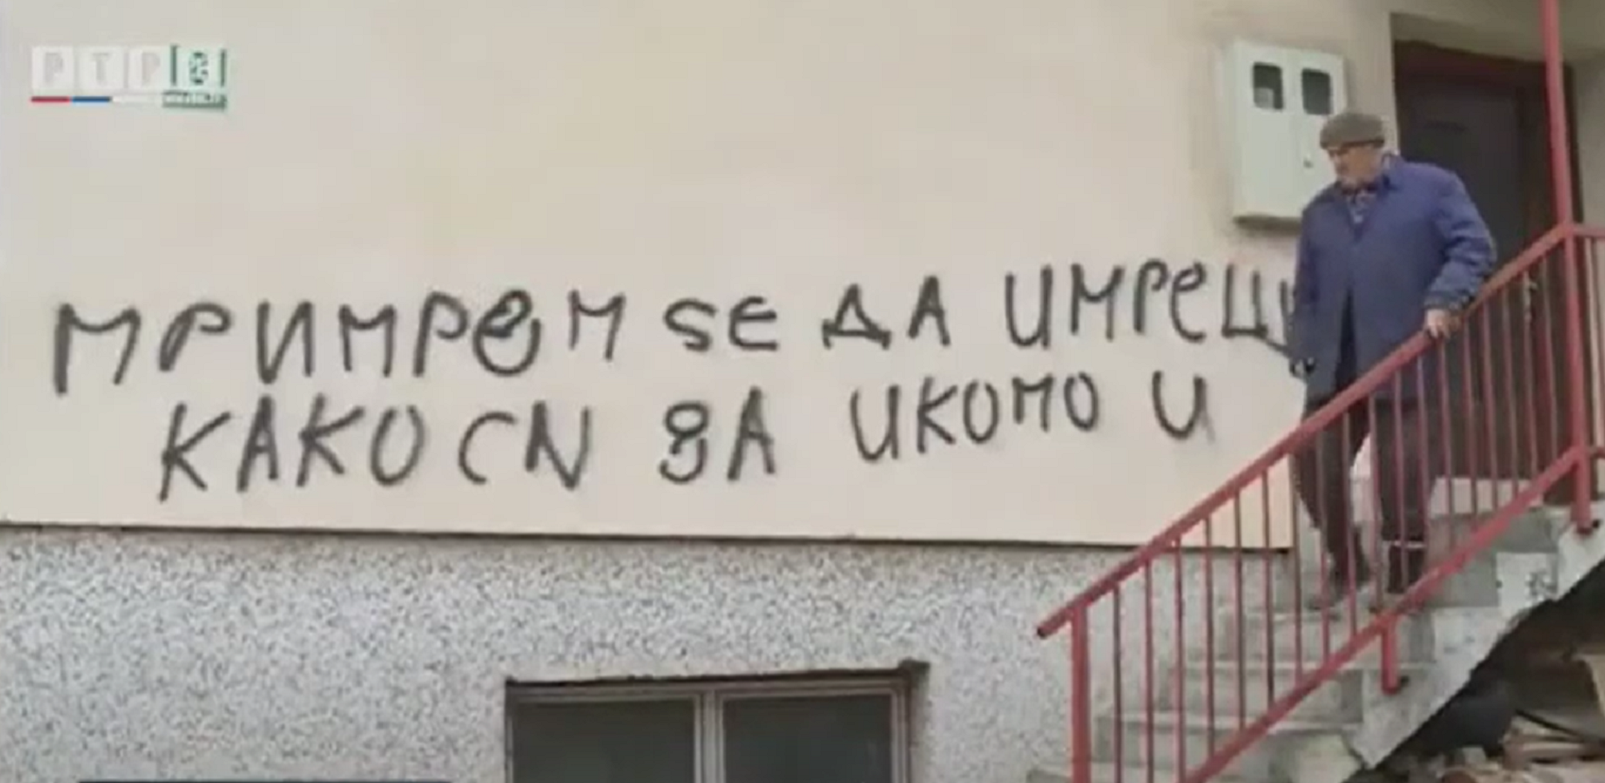 РТРС
МРИМРЕМ SE ДА ИМРЕЦИ
КАКО СN ЗА ИКОМО И